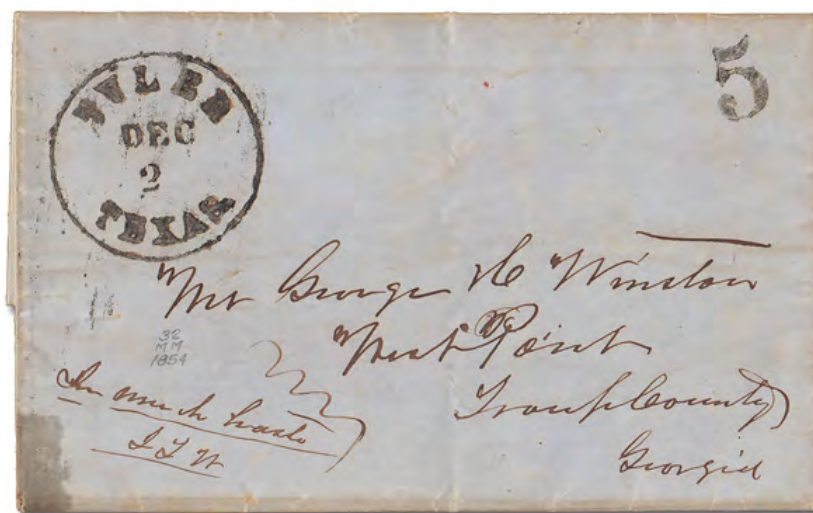 TYLER
DEC
2
TEXAS
5
Mr George H Winston
West Point
Troup County
Georgia
32
MM
1854
In much haste